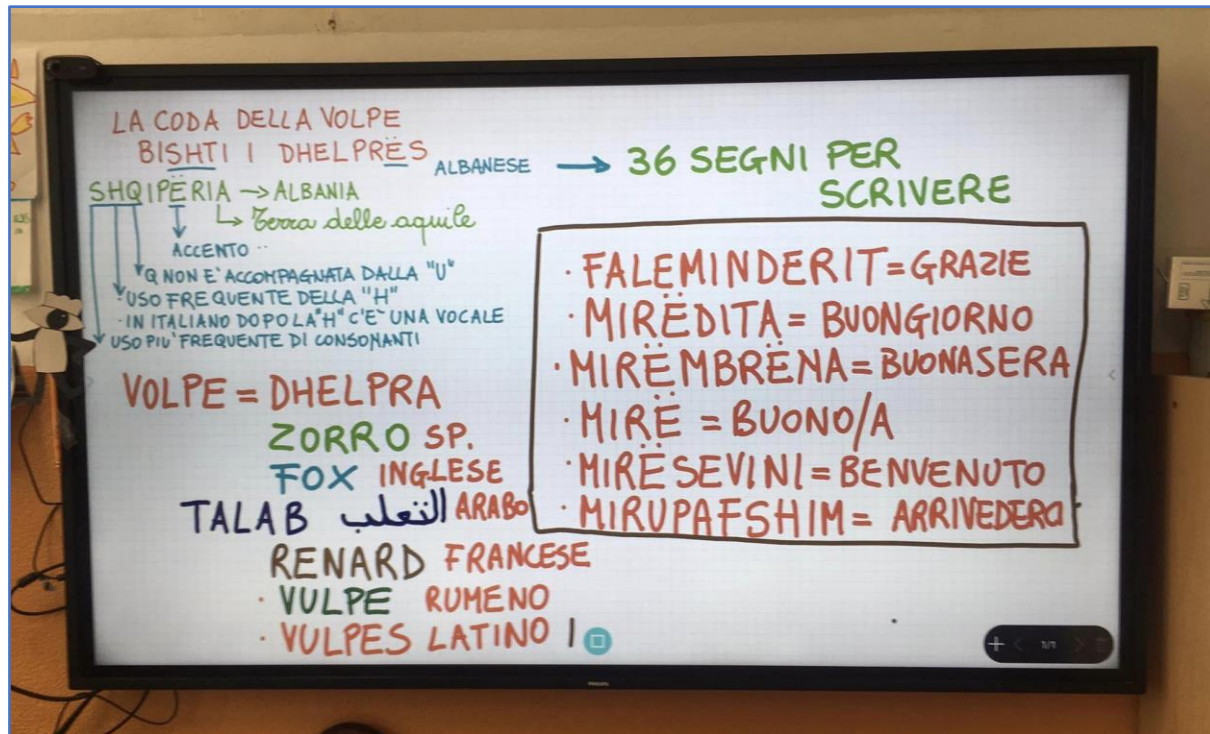 LA CODA DELLA VOLPE
BISHTI I DHELPRËS
ALBANESE → 36 SEGNI PER
SCRIVERE
SHQIPËRIA → ALBANIA
↳ Terra delle aquile
ACCENTO ..
Q NON E' ACCOMPAGNATA DALLA "U"
USO FREQUENTE DELLA "H"
· IN ITALIANO DOPO LA "H" C'E' UNA VOCALE
USO PIU' FREQUENTE DI CONSONANTI
VOLPE = DHELPRA
ZORRO SP.
FOX INGLESE
TALAB الثعلب ARABO
RENARD FRANCESE
· VULPE RUMENO
· VULPES LATINO
· FALEMINDERIT = GRAZIE
· MIRËDITA = BUONGIORNO
· MIRËMBRËNA = BUONASERA
· MIRË = BUONO/A
· MIRËSEVINI = BENVENUTO
· MIRUPAFSHIM = ARRIVEDERCI
1/1
PHILIPS